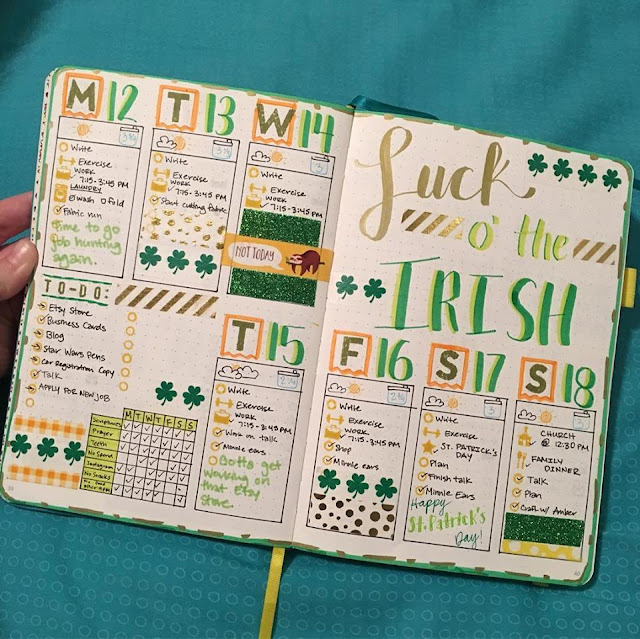 M 12
Write
Exercise
WORK
7:15-3:45 PM
LAUNDRY
wash fold
Fabric run
Time to go
job hunting
again.
T 13
Write
Exercise
WORK
7:15-3:45 PM
Start cutting fabric
W 14
3
Write
Exercise
WORK
7:15-3:45 PM
NOT TODAY
TO-DO:
Etsy Store
Business Cards
Blog
Star Wars Pens
Car Registration Copy
Talk
APPLY FOR NEW JOB
M T W T F S S
Scriptures
Prayer
Teeth
No Spend
Instagram
No Snacks
T 15
Write
Exercise
WORK
7:15-3:45 PM
Work on talk
Minnie ears
Gotta get
working on
that Etsy
Store.
Luck
o' the
IRISH
F 16
Write
Exercise
WORK
7:15-3:45 PM
Shop
Minnie ears
S 17
3
Write
Exercise
ST. PATRICK'S
DAY
Plan
Finish talk
Minnie Ears
Happy
St. Patrick's
Day!
S 18
3
CHURCH
@ 12:30 PM
FAMILY
DINNER
Talk
Plan
Craft w/ Amber